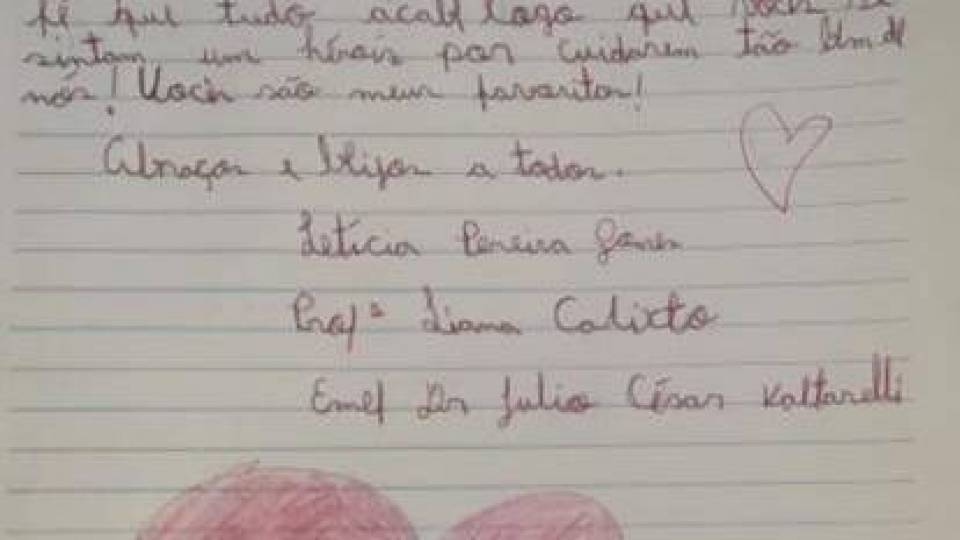 fé que tudo acabe logo que vocês se
sintam um heróis por cuidarem tão bem de
nós! Vocês são meus favoritos!
Abraços e beijos a todos.
Letícia Pereira
Profª Liana Calixto
Emef Dr Julio César Voltarelli